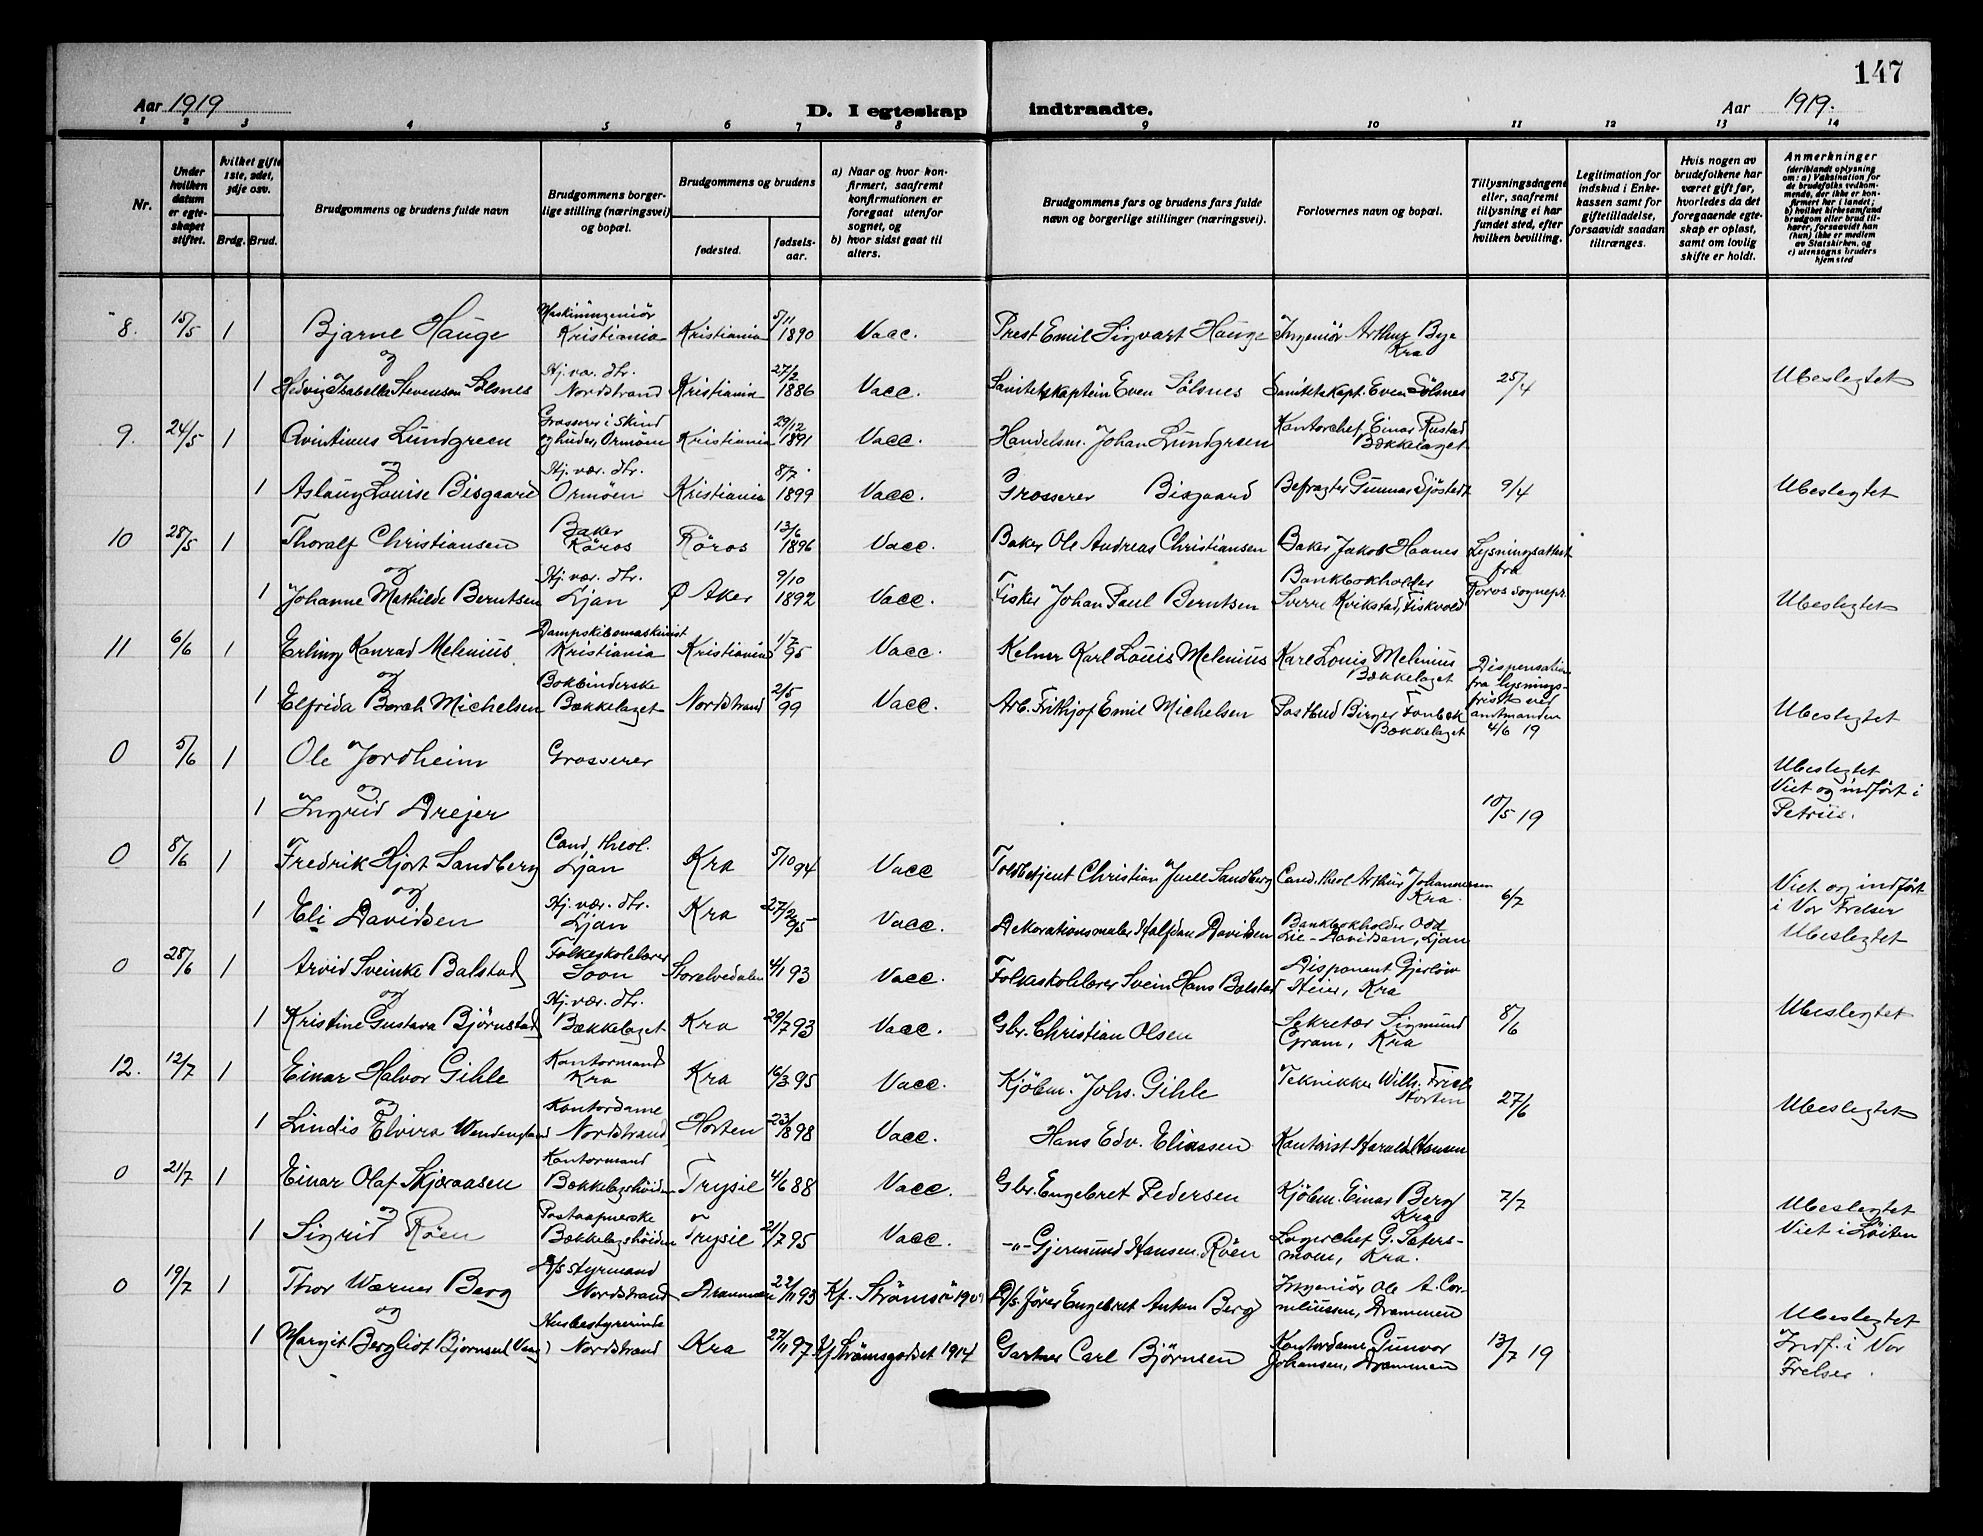 147
Aar 1919
D. I egteskap indtraadte.
Aar 1919.
1 2 3 4 5 6 7 8 9 10 11 12 13 14
Nr.
Under hvilken datum er egteskapet stiftet.
hvilket gifte 1ste, 2det, 3dje osv.
Brdg. Brud.
Brudgommens og brudens fulde navn
Brudgommens borgerlige stilling (næringsvei) og bopæl.
Brudgommens og brudens
fødested.
fødselsaar.
a) Naar og hvor konfirmert, saafremt konfirmationen er foregaat utenfor sognet, og
b) hvor sidst gaat til alters.
Brudgommens fars og brudens fars fulde navn og borgerlige stillinger (næringsvei).
Forlovernes navn og bopæl.
Tillysningsdagene eller, saafremt tillysning ei har fundet sted, efter hvilken bevilling.
Legitimation for indskud i Enkekassen samt for giftetilladelse, forsaavidt saadan tiltrænges.
Hvis nogen av brudefolkene har været gift før, hvorledes da det foregaaende egteskap er opløst, samt om lovlig skifte er holdt.
Anmerkninger (deriblandt oplysning om: a) Vaksination for de brudefolks vedkommende, der ikke er konfirmert her i landet; b) hvilket kirkesamfund brudgom eller brud tilhører, forsaavidt han (hun) ikke er medlem av Statskirken, og c) utensogns bruders hjemsted
8. 15/5 1 Bjarne Hauge Maskiningeniør Kristiania Kristiania 5/11 1890 Vacc. Prest Emil Sigvart Hauge Ingeniør Arthur Bye Kra
og
1 Hedvig Isabella Stevenson Sølsnes Hj. vær. dtr. Nordstrand Kristiania 27/2 1886 Vacc. Sanitetskaptein Even Sølsnes Sanitetskapt. Even Sølsnes 25/4 Ubeslegtet
9. 24/5 1 Qvintinus Lundgreen Grosserer i Skind og huder, Ormøen Kristiania 29/12 1891 Vacc. Handelsm. Johan Lundgreen Kontorchef Einar Rustad Bækkelaget
og
1 Aslaug Louise Bisgaard Hj. vær. dtr. Ormøen Kristiania 8/7 1899 Vacc. Grosserer Bisgaard Befragter Gunnar Sjöstedt 9/4 Ubeslegtet
10 28/5 1 Thoralf Christiansen Baker Røros Røros 13/6 1896 Vacc. Baker Ole Andreas Christiansen Baker Jakob Haanes Lysningsattest fra Røros sognepr.
og
1 Johanne Mathilde Berntsen Hj. vær. dtr. Ljan Ø Aker 9/10 1892 Vacc. Fisker Johan Paul Berntsen Bankbokholder Sverre Kvikstad, Fiskvold Ubeslegtet
11 6/6 1 Erling Konrad Melenius Dampskibsmaskinist Kristiania Kristiania 1/7 95 Vacc. Kelner Karl Louis Melenius Karl Louis Melenius Bækkelaget Dispensation fra lysningsfrist ved amtmanden 4/6 19
og
1 Elfrida Borch Michelsen Bokbinderske Bækkelaget Nordstrand 2/5 99 Vacc. Arb. Frithjof Emil Michelsen Postbud Birger Fonbæk Bækkelaget Ubeslegtet
0 5/6 1 Ole Jordheim Grosserer
og
1 Ingrid Drejer 10/5 19 Ubeslegtet Viet og indført i Petrus.
0 8/6 1 Fredrik Hjort Sandberg Cand. theol. Ljan Kra 5/10 94 Vacc Toldbetjent Christian Juell Sandberg Cand. theol Arthur Johannessen Kra.
og
1 Eli Davidsen Hj. vær. dtr. Ljan Kra 27/2 95 Vacc. Dekorationsmaler Halfdan Davidsen Bankbokholder Odd Lie-Davidsen, Ljan 6/7 Viet og indført i Vor Frelser Ubeslegtet
0 28/6 1 Arvid Sveinke Balstad Folkeskolelærer Soon Storelvedalen 4/1 93 Vacc. Folkeskolelærer Svein Hans Balstad Disponent Gjerløw Heier, Kra
og
1 Kristine Gustava Bjørnstad Hj. vær. dtr. Bækkelaget Kra 29/7 93 Vacc. Gbr. Christian Olsen Sekretær Sigmund Gram, Kra 8/6 Ubeslegtet
12. 12/7 1 Einar Halvor Gihle Kontormand Kra Kra 16/3 95 Vacc. Kjøbm. Johs. Gihle Tekniker Wilh. Horten
og
1 Lindis Elvira Kontordame Nordstrand Horten 23/1898 Vacc. Hans Edv. Eliassen Kontorist Harald Hansen 27/6 Ubeslegtet
0 21/7 1 Einar Olaf Skjæraasen Kontormand Bækkelagshøiden Trysil 4/6 88 Vacc. Gbr. Engebret Pedersen Kjøbm. Einar Berg Kra 7/7
og
1 Sigrid Røen Postaapnerske Bækkelagshøiden Trysil 21/7 95 Vacc. -"- Gjermund Hansen Røen Lagerchef G. Sætersmoen, Kra. Ubeslegtet Viet i Løiten
0 19/7 1 Thor Wærner Berg D/s styrmand Nordstrand Drammen 22/11 93 Kf. Strømsø D/s. fører Engebret Anton Berg Ingeniør Ole A. Corneliussen, Drammen
og
1 Margit Bergliot Bjørnsen Husbestyrerinde Nordstrand Kra 27/11 97 Kf Strømsgodset 1914 Gartner Carl Bjørnsen Kontordame Gunvor Johansen, Drammen 13/7 19 Ubeslegtet Indf. i Vor Frelser.